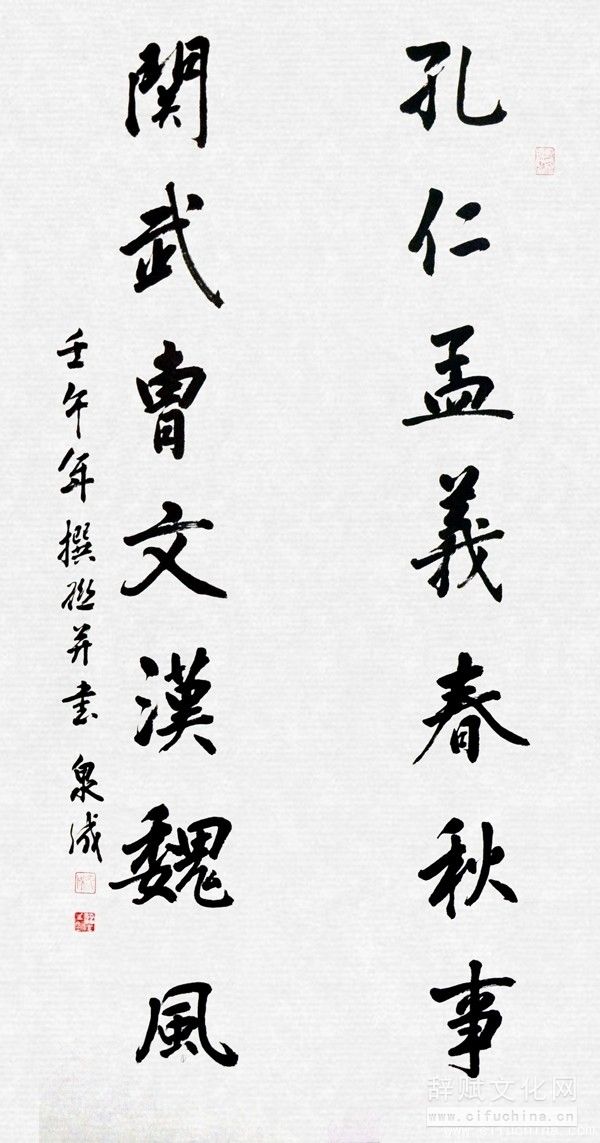 孔仁孟義春秋事
関武曹文漢魏風
壬午年撰聯并書 泉成
辞赋文化网
www.cifuchina.cn